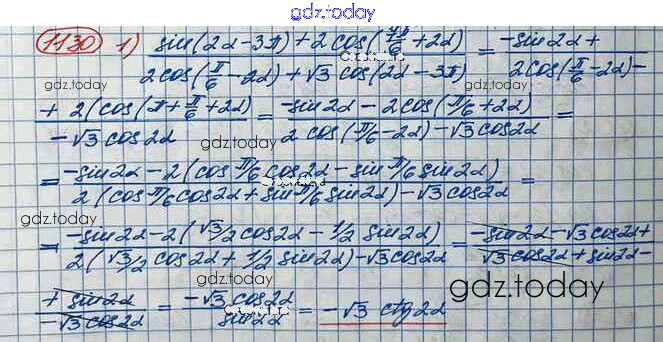 gdz.today
1130 1) (sin(2α-3π)+2cos(7π/6+2α))/(2cos(π/6-2α)+√3 cos(2α-3π)) = (-sin2α+)/(2cos(π/6-2α)-)
gdz.today
gdz.today
gdz.today
(+2(cos(π+π/6+2α))/(-√3cos2α) = (-sin2α-2cos(π/6+2α))/(2cos(π/6-2α)-√3cos2α) =
gdz.today
= (-sin2α-2(cosπ/6cos2α-sinπ/6sin2α))/(2(cosπ/6cos2α+sinπ/6sin2α)-√3cos2α) =
gdz.today
= (-sin2α-2(√3/2cos2α-1/2sin2α))/(2(√3/2cos2α+1/2sin2α)-√3cos2α) = (-sin2α-√3cos2α+)/(√3cos2α+sin2α-)
gdz.today
(+sin2α)/(-√3cos2α) = (-√3cos2α)/(sin2α) = -√3 ctg2α
gdz.today